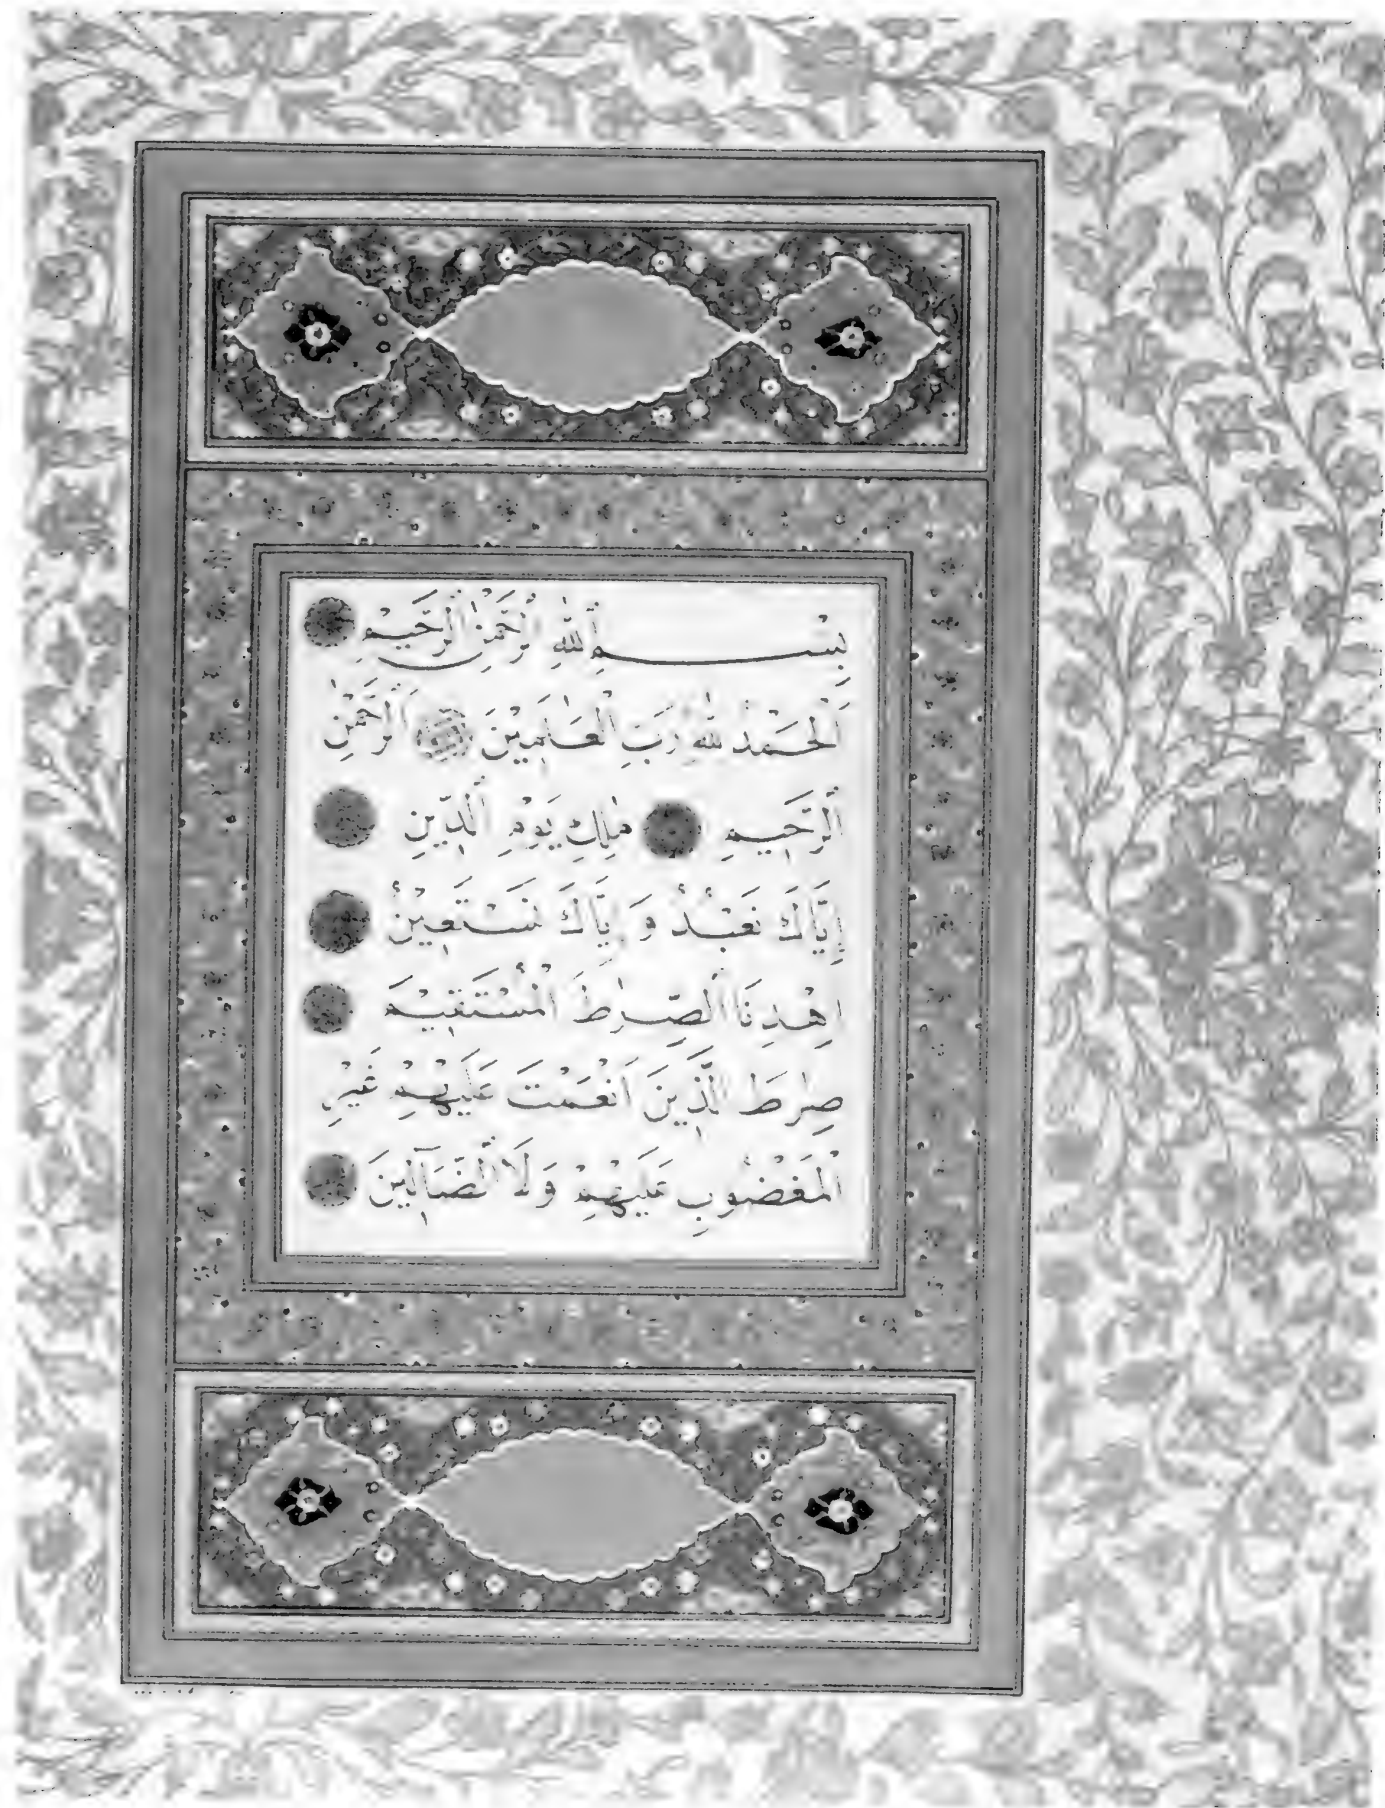 بِسْمِ اللّٰهِ الرَّحْمٰنِ الرَّحِيمِ
اَلْحَمْدُ لِلّٰهِ رَبِّ الْعَالَمِينَ اَلرَّحْمٰنِ
الرَّحِيمِ مٰلِكِ يَوْمِ الدِّينِ
اِيَّاكَ نَعْبُدُ وَاِيَّاكَ نَسْتَعِينُ
اِهْدِنَا الصِّرٰاطَ الْمُسْتَقِيمَ
صِرٰاطَ الَّذِينَ اَنْعَمْتَ عَلَيْهِمْ غَيْرِ
الْمَغْضُوبِ عَلَيْهِمْ وَلَا الضَّآلِّينَ